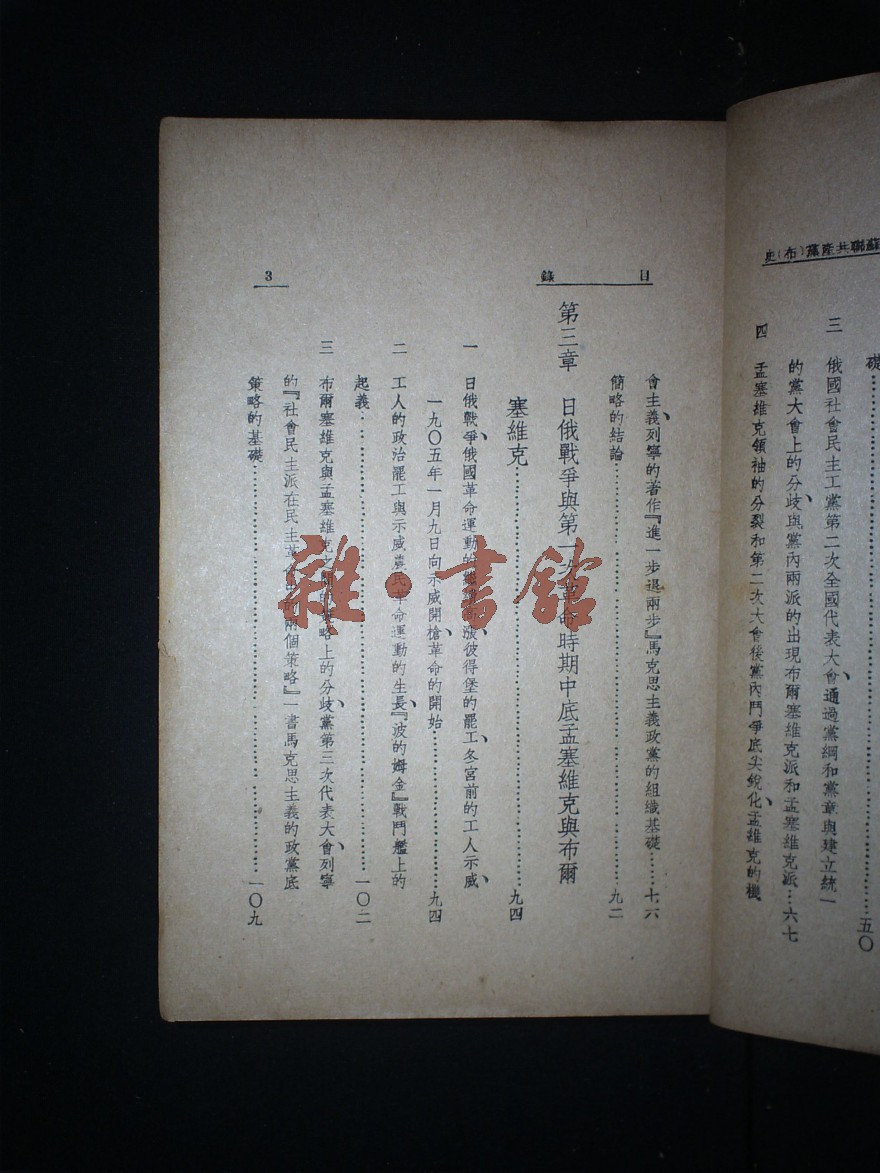 蘇聯共產黨(布)史
礎……五〇
三 俄國社會民主工黨第二次全國代表大會、通過黨綱和黨章與建立統一
的黨大會上的分歧、與黨內兩派的出現布爾塞維克派和孟塞維克派…六七
四 孟塞維克領袖的分裂和第二次大會後黨內鬥爭底尖銳化、孟維克的機
目錄
3
會主義、列寧的著作『進一步退兩步』馬克思主義政黨的組織基礎……十六
簡略的結論……九二
第三章 日俄戰爭與第一次革命時期中底孟塞維克與布爾
塞維克……九四
一 日俄戰爭、俄國革命運動的繼續高漲、彼得堡的罷工、冬宮前的工人示威、
一九〇五年一月九日向示威開槍、革命的開始……九四
二 工人的政治罷工與示威農民革命運動的生長、『波的姆金』戰鬥艦上的
起義……一〇二
三 布爾塞維克與孟塞維克之間的策略上的分歧、黨第三次代表大會、列寧
的『社會民主派在民主革命中的兩個策略』一書馬克思主義的政黨底
策略的基礎……一〇九
雜·書館